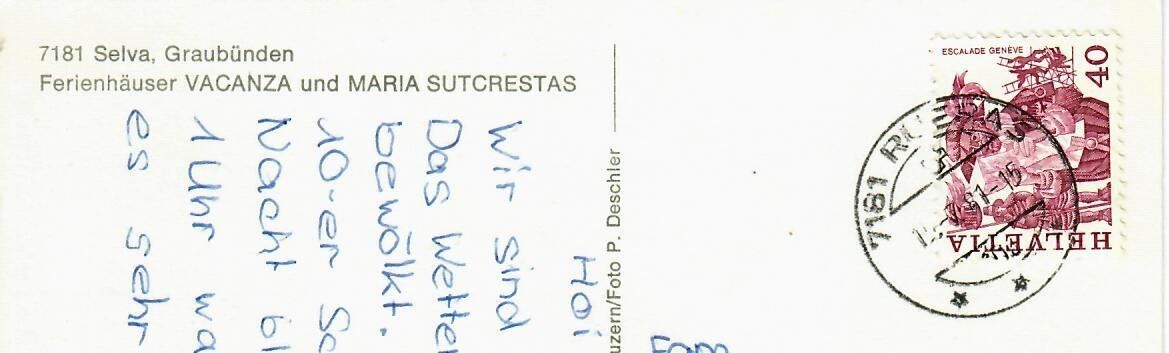 7181 Selva, Graubünden
Ferienhäuser VACANZA und MARIA SUTCRESTAS
Hoi
Wir sind
Das Wetter
bewölkt.
10-er
Nacht
1 Uhr
es sehr
uzern/Foto P. Deschler
ESCALADE GENÈVE
40
HELVETIA
7181